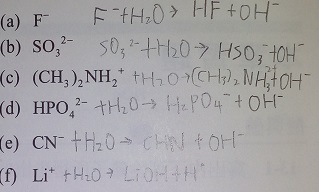 (a) F⁻ F⁻ + H₂O → HF + OH⁻
(b) SO₃²⁻ SO₃²⁻ + H₂O → HSO₃⁻ + OH⁻
(c) (CH₃)₂NH₂⁺ + H₂O → (CH₃)₂ + OH⁻
(d) HPO₄²⁻ + H₂O → H₂PO₄⁻ + OH⁻
(e) CN⁻ + H₂O → + OH⁻
(f) Li⁺ + H₂O → LiOH + H⁺